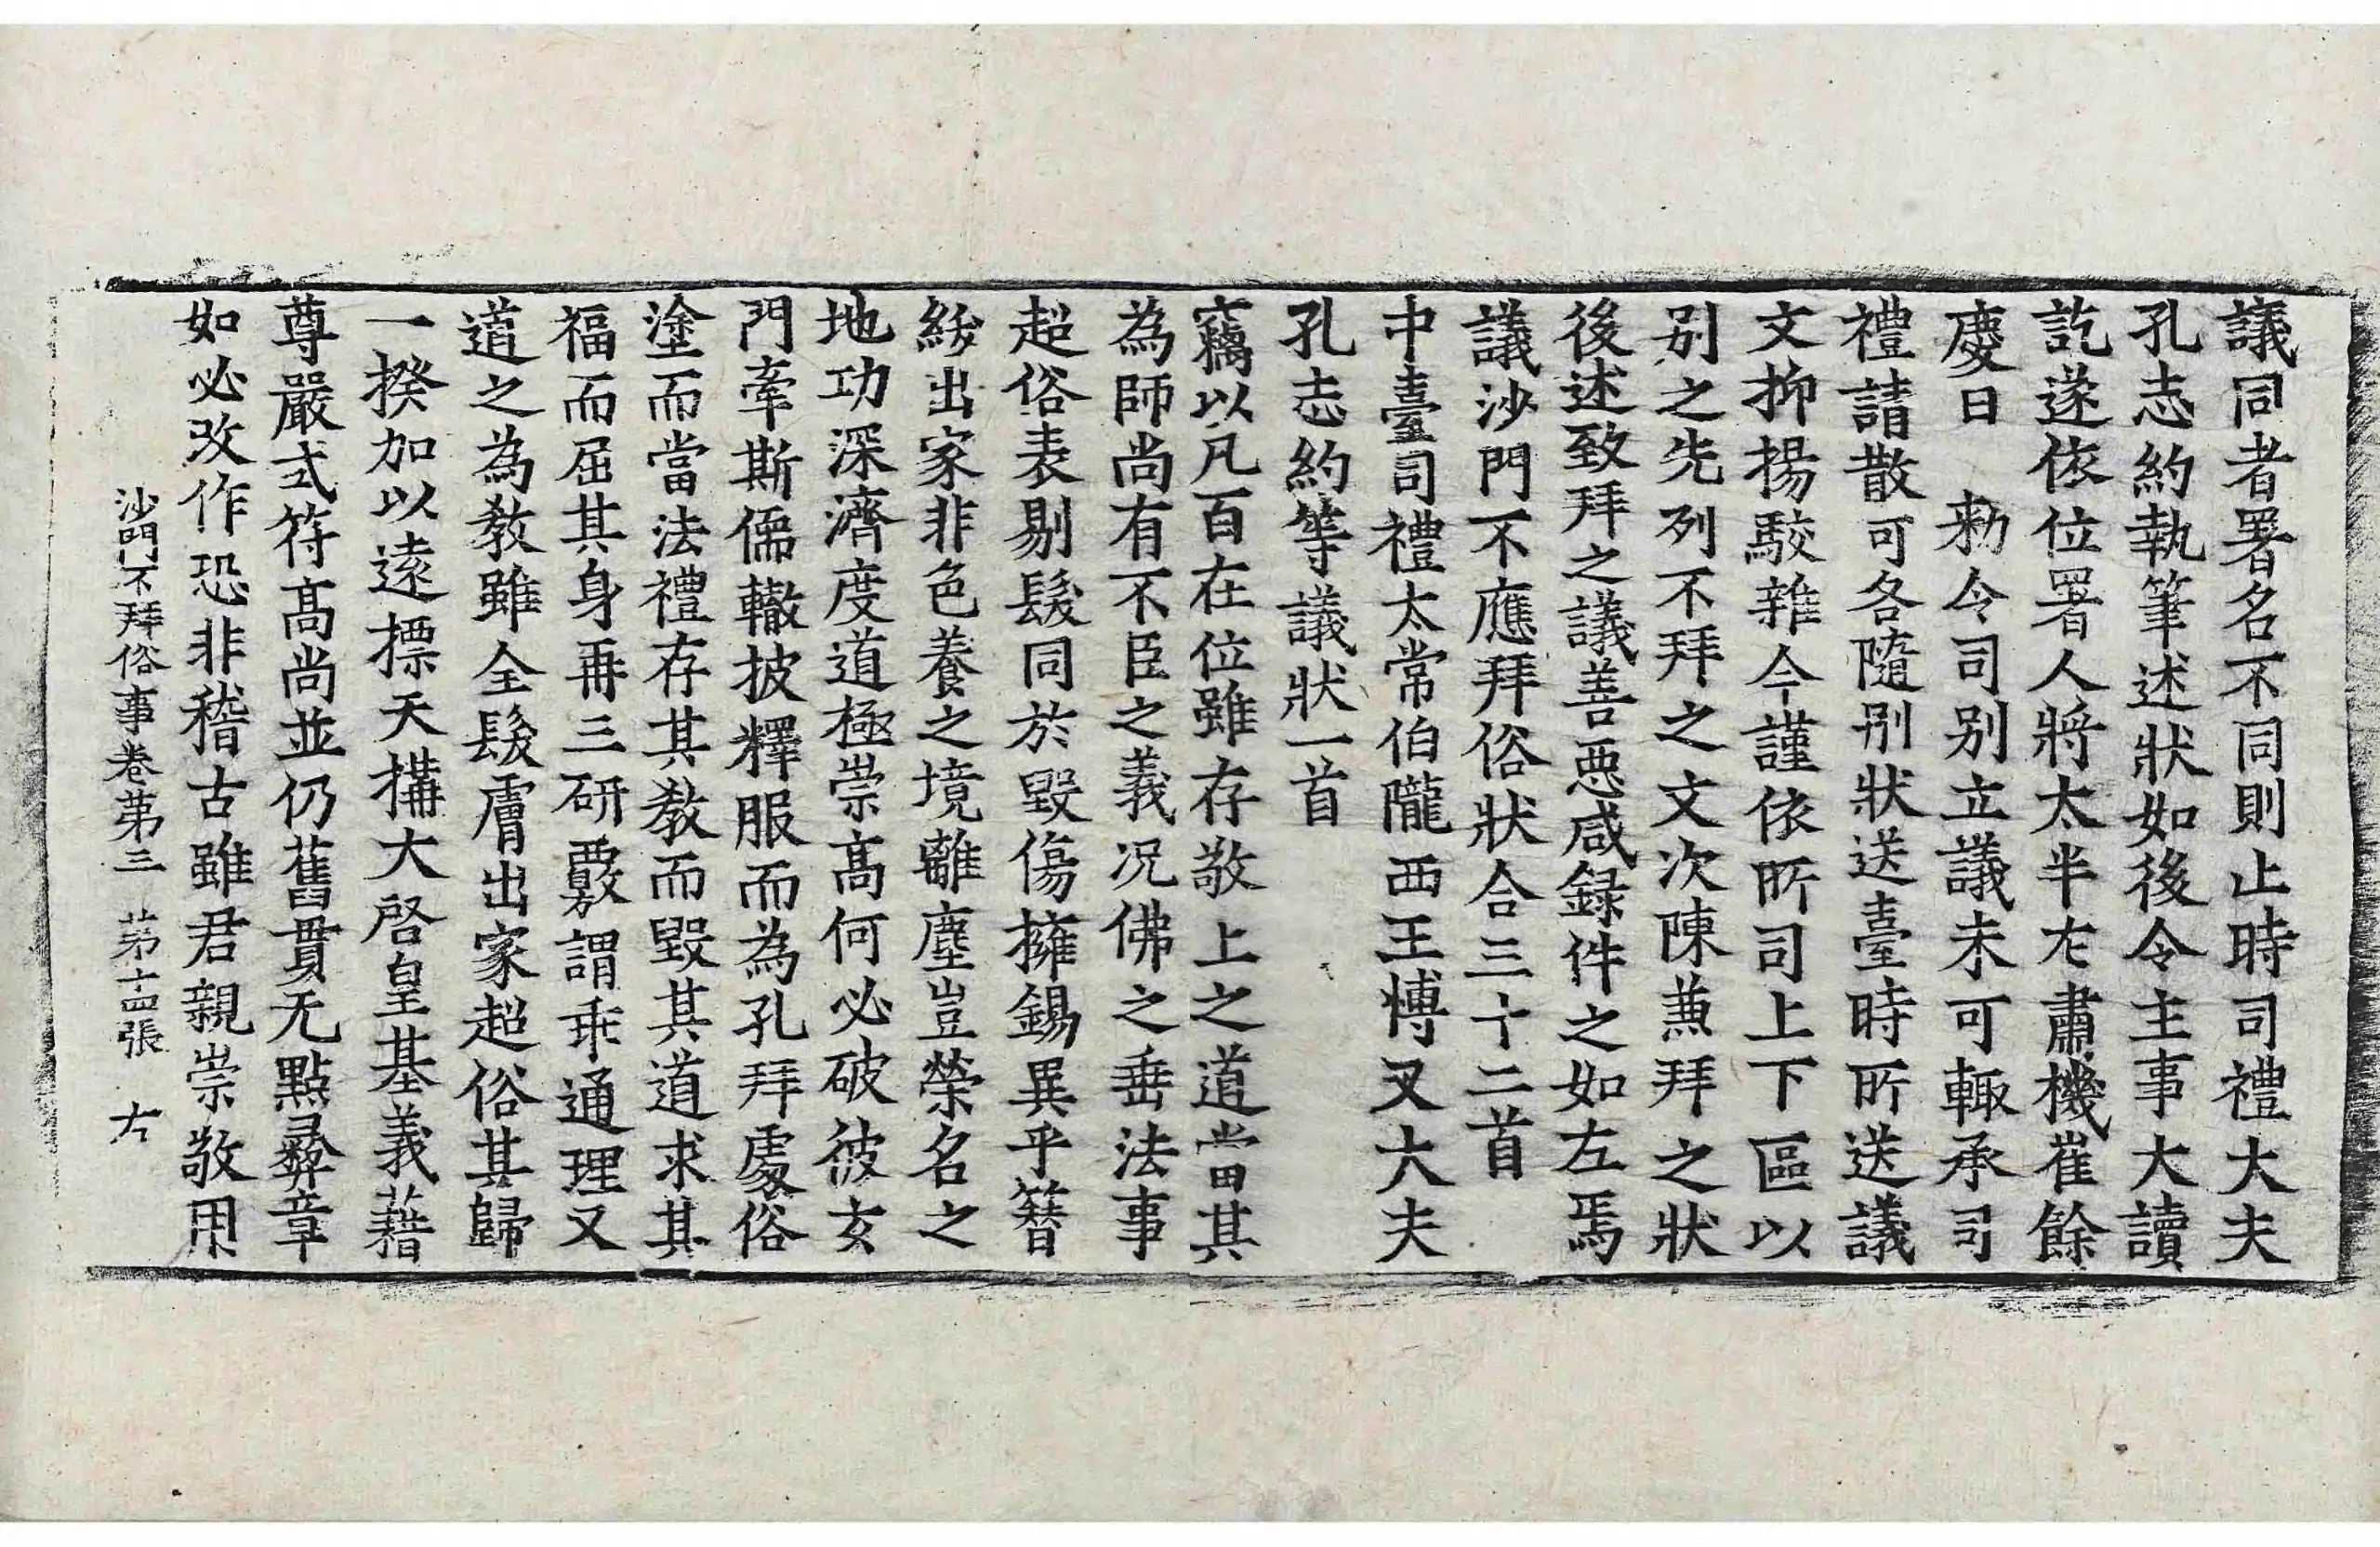 議同者署名不同則止時司禮大夫
孔志約執筆述狀如後令主事大讀
訖遂依位署人將太半左肅機崔餘
慶曰　勑令司別立議未可輙承司
禮請散可各隨別狀送臺時所送議
文抑揚駮雜今謹依所司上下區以
別之先列不拜之文次陳兼拜之狀
後述致拜之議善惡咸録件之如左焉
議沙門不應拜俗狀合三十二首
中臺司禮太常伯隴西王愽叉大夫
孔志約等議狀一首
竊以凡百在位雖存敬上之道當其
為師尚有不臣之義况佛之垂法事
超俗表剔髮同於毀傷擁錫異乎簪
紱出家非色養之境離塵豈榮名之
地功深濟度道極崇高何必破彼玄
門牽斯儒轍披釋服而為孔拜處俗
塗而當法禮存其教而毀其道求其
福而屈其身再三研覈謂乖通理又
道之為教雖全髮膚出家超俗其歸
一揆加以遠標天構大啓皇基義藉
尊嚴式符高尚並仍舊貫无點彝章
如必改作恐非稽古雖君親崇敬用
沙門不拜俗事卷苐三　苐十四張　右